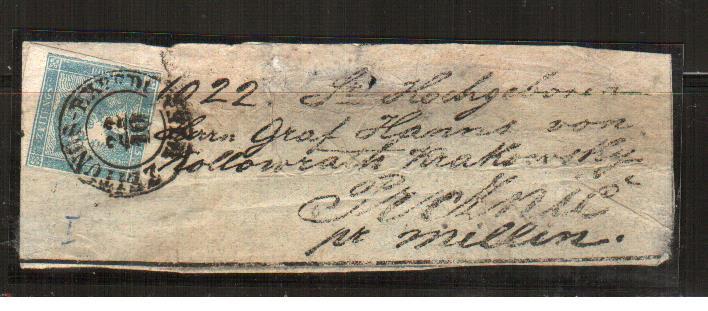 1022 Sr Hochgeboren
Herrn Graf Hanns von
Kollowrath Krakowsky
pr millin.
22
10